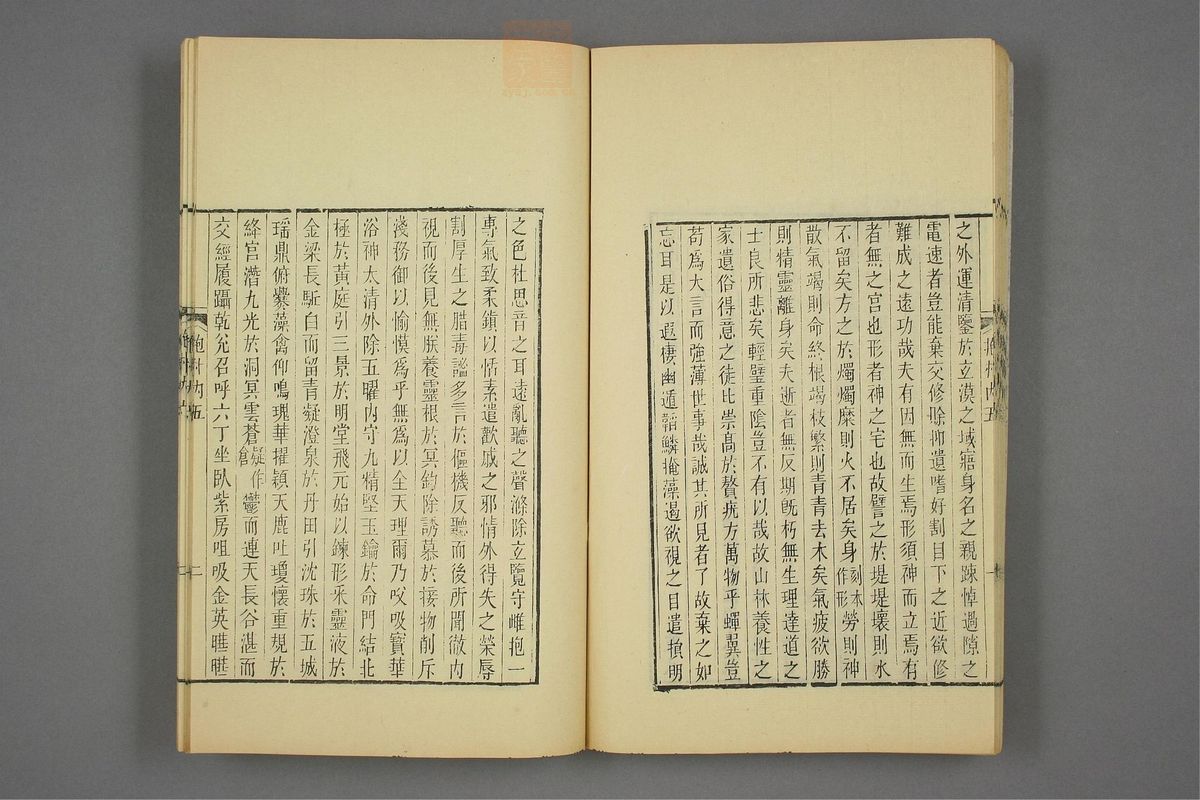 之外運清鑒於立漠之域寤身名之親疎悼過隙之
電速者豈能棄交修賒抑遺嗜好割目下之近欲修
難成之遠功哉夫有因無而生焉形須神而立焉有
者無之宮也形者神之宅也故譬之於堤堤壞則水
不留矣方之於燭燭糜則火不居矣身刻本作形勞則神
散氣竭則命終根竭枝繁則青青去木矣氣疲欲勝
則精靈離身矣夫逝者無反期旣朽無生理達道之
士良所悲矣輕璧重陰豈不有以哉故山林養性之
家遺俗得意之徒比崇高於贅疣方萬物乎蟬翼豈
苟爲大言而強薄世事哉誠其所見者了故棄之如
忘耳是以遐棲幽遁韜鱗掩藻遏欲視之目遣損明
之色杜思音之耳遠亂聽之聲滌除立覽守雌抱一
專氣致柔鎭以恬素遣歡戚之邪情外得失之榮辱
割厚生之腊毒謐多言於樞機反聽而後所聞徹內
視而後見無朕養靈根於冥鈞除誘慕於接物削斥
淺務御以愉慔爲乎無爲以全天理爾乃㕮吸寳華
浴神太清外除五曜內守九精堅玉鑰於命門結北
極於黃庭引三景於明堂飛元始以鍊形采靈液於
金梁長駈白而留青凝澄泉於丹田引沈珠於五城
瑤鼎俯爨藻禽仰鳴瑰華擢穎天鹿吐瓊懷重規於
絳宮潛九光於洞冥雲蒼疑作倉鬱而連天長谷湛而
交經履躡乾兌召呼六丁坐臥紫房咀吸金英曄曄
抱朴內五
二